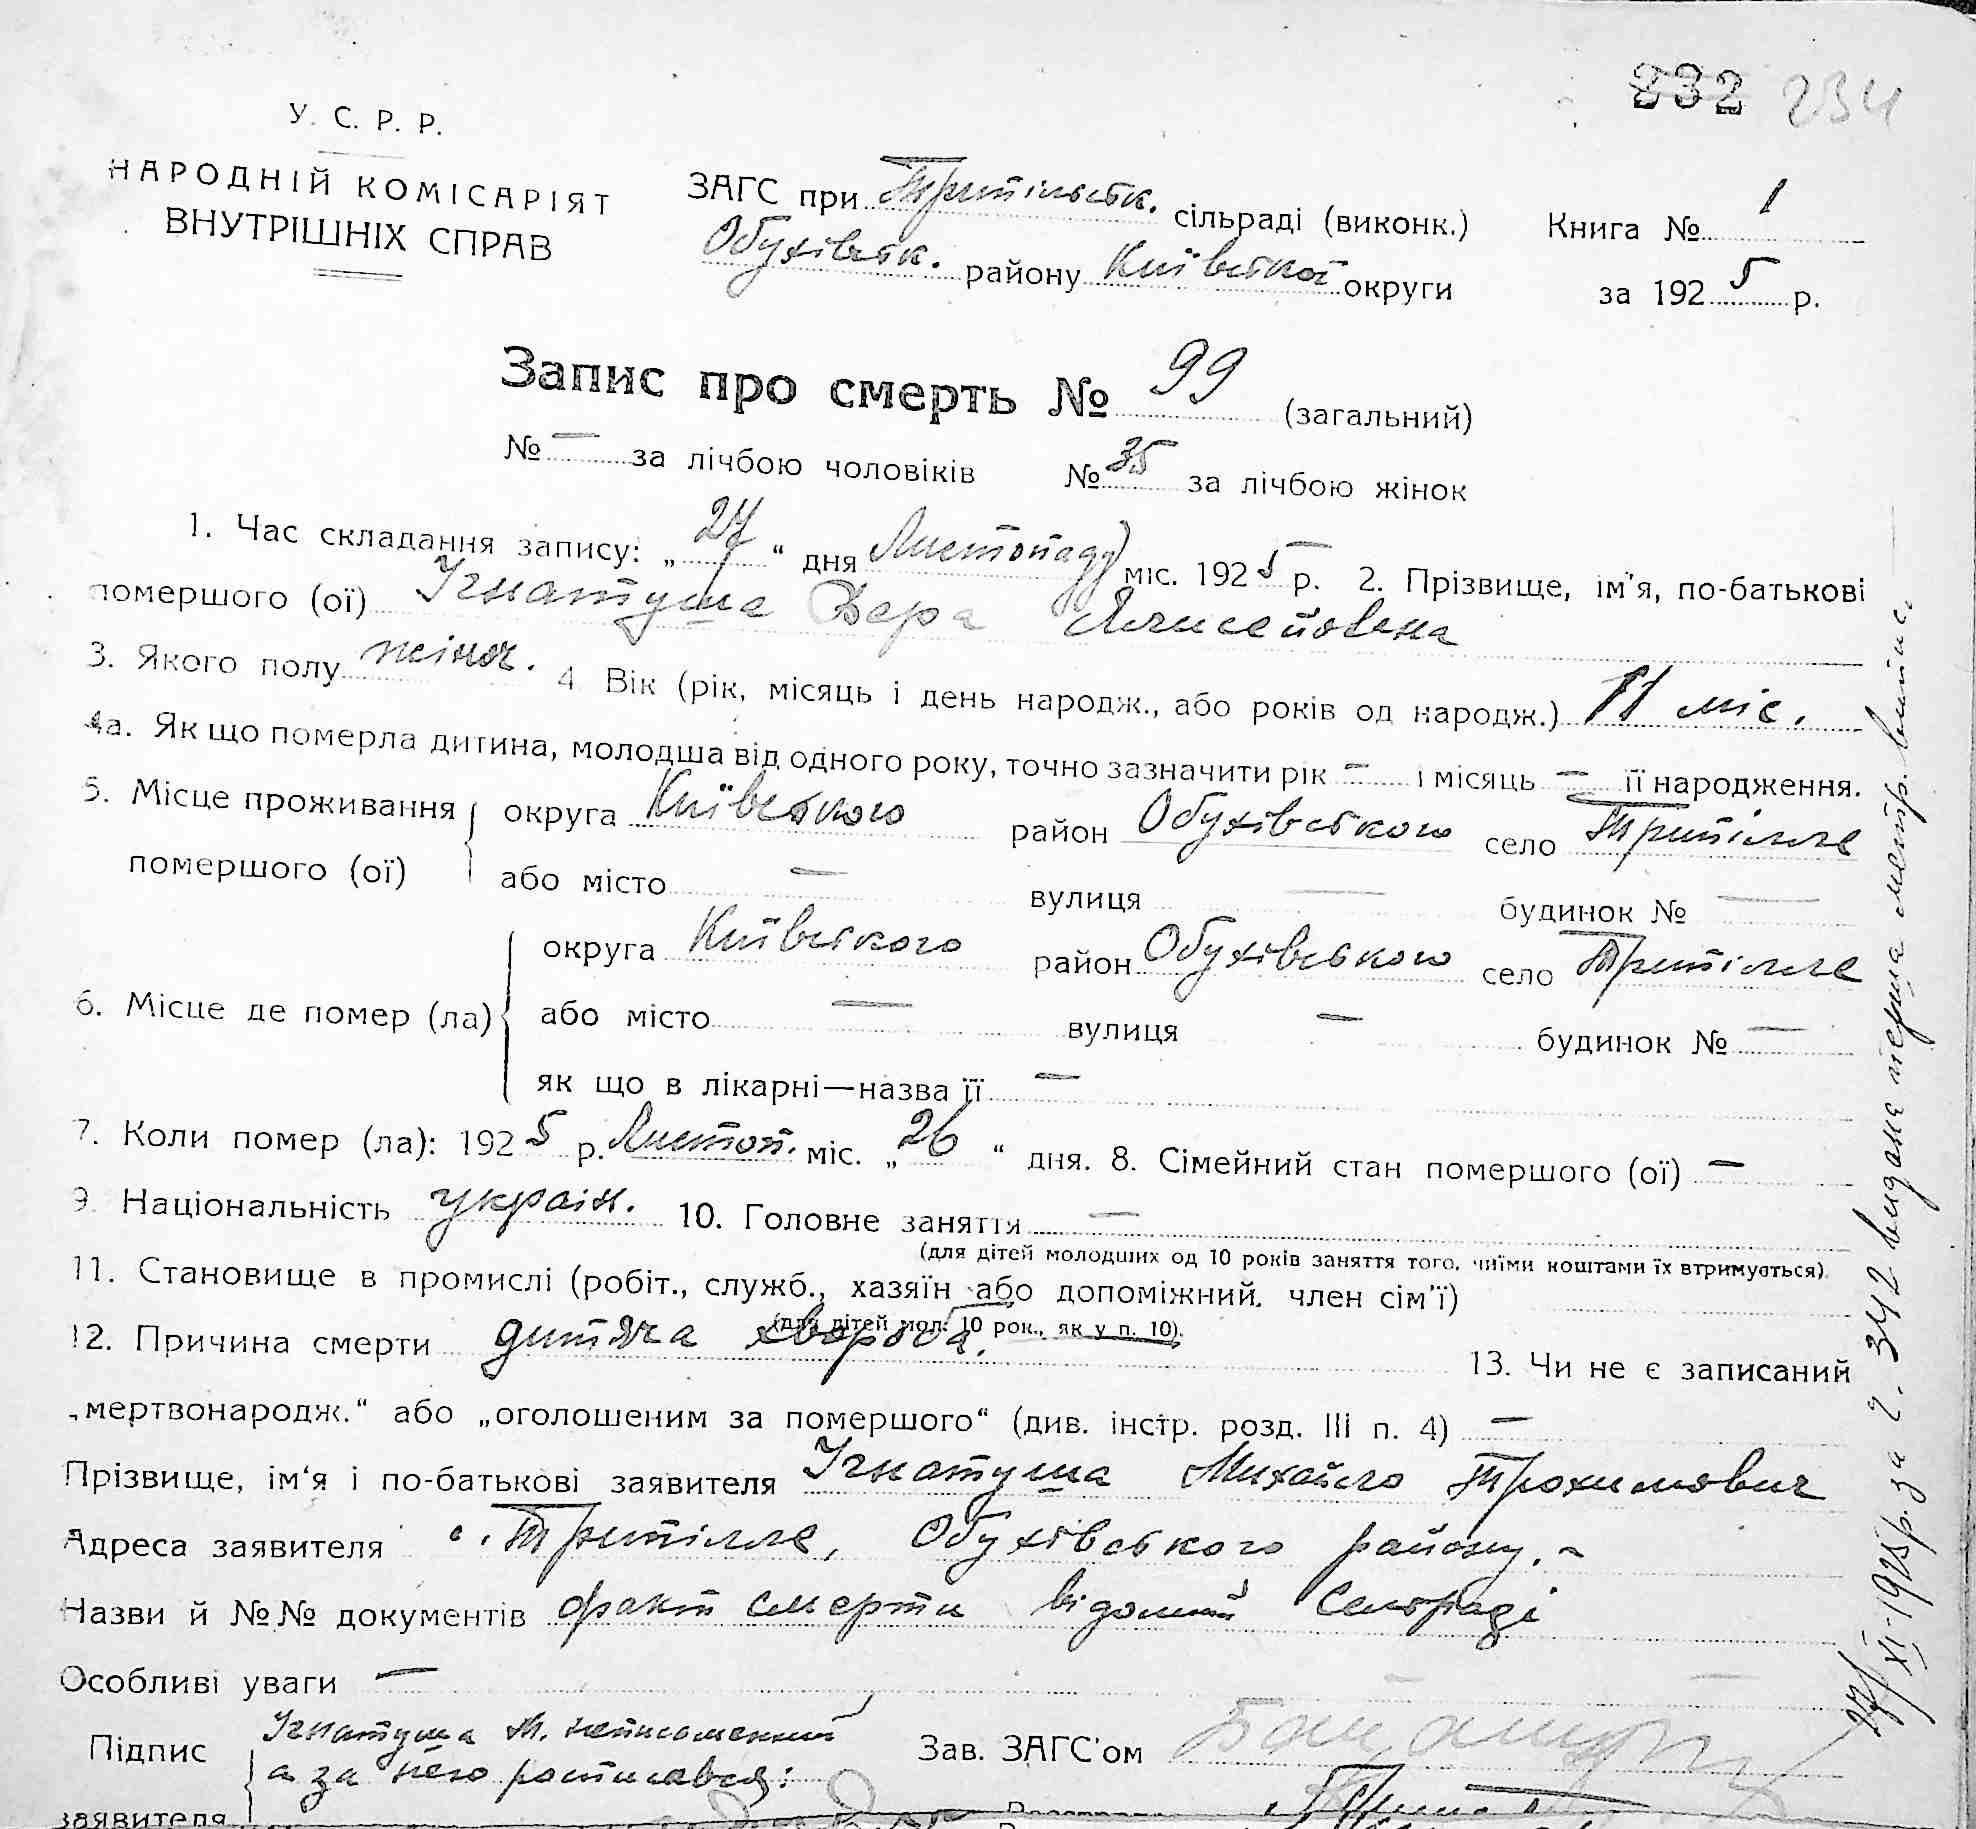 232 234
У. С. Р. Р.
НАРОДНІЙ КОМІСАРІЯТ
ВНУТРІШНІХ СПРАВ
ЗАГС при Трипільськ. сільраді (виконк.)
Обухівськ. району Київської округи
Книга № 1
за 1925 р.
Запис про смерть № 99 (загальний)
№ — за лічбою чоловіків № 35 за лічбою жінок
1. Час складання запису: „27“ дня Листопаду міс. 1925 р. 2. Прізвище, ім'я, по-батькові
помершого (ої) Ігнатуша Вера
3. Якого полу жіноч. 4. Вік (рік, місяць і день народж., або років од народж.) 11 міс.
4а. Як що померла дитина, молодша від одного року, точно зазначити рік — і місяць — її народження.
5. Місце проживання округа Київського район Обухівського село Трипілля
помершого (ої) або місто — вулиця — будинок № —
округа Київського район Обухівського село Трипілля
6. Місце де помер (ла) або місто — вулиця — будинок № —
як що в лікарні—назва її —
7. Коли помер (ла): 1925 р. Листоп. міс. „26“ дня. 8. Сімейний стан помершого (ої) —
9. Національність україн. 10. Головне заняття —
(для дітей молодших од 10 років заняття того, чиїми коштами їх втримується).
11. Становище в промислі (робіт., служб., хазяїн або допоміжний. член сім'ї)
(для дітей мол. 10 рок., як у п. 10).
12. Причина смерти дитяча хвороба. 13. Чи не є записаний
„мертвонародж.“ або „оголошеним за помершого“ (див. інстр. розд. III п. 4) —
Прізвище, ім'я і по-батькові заявителя Ігнатуша Михайло Трохимович
Адреса заявителя с. Трипілля, Обухівського району. ~
Назви й №№ документів факт смерти відомий Сельраді
Особливі уваги —
Підпис Ігнатуша М. неписьменний Зав. ЗАГС'ом
а за нєго росписався:
заявителя
27/XI-1925 р. за ч. 342 видане перша метр. випис.